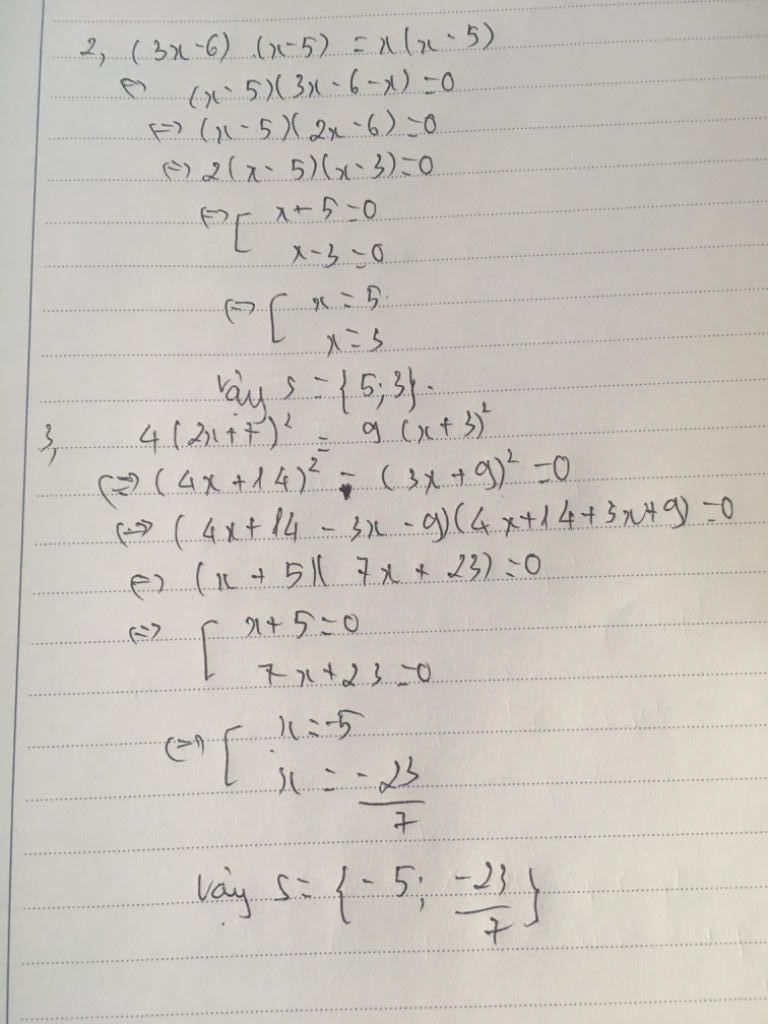 2, (3x-6) (x-5) = x(x-5)
⇔ (x-5)(3x-6-x)=0
⇔ (x-5)(2x-6)=0
⇔ 2(x-5)(x-3)=0
⇔ [ x+5=0
x-3=0
⇔ [ x=5
x=3
vậy S={5;3}.
3, 4(2x+7)² = 9(x+3)²
⇔ (4x+14)² - (3x+9)² =0
⇔ (4x+14-3x-9)(4x+14+3x+9)=0
⇔ (x+5)(7x+23)=0
⇔ [ x+5=0
7x+23=0
⇔ [ x=-5
x = -23/7
Vậy S={-5; -23/7}